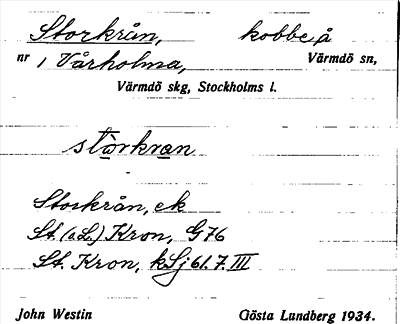 Storkrån, kobbe å
nr 1 Vårholma, Värmdö sn,
Värmdö skg, Stockholms l.
stòrkran
Storkrån, ek
St. (a L.) Kron, G76
St. Kron, kSj 61.7.III
John Westin Gösta Lundberg 1934.